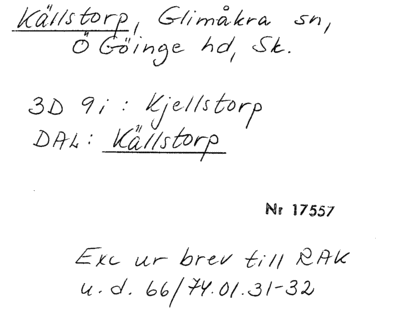 Källstorp, Glimåkra sn,
Ö Göinge hd, Sk.
3D 9i : Kjellstorp
DAL: Källstorp
Nr 17557
Exc ur brev till RAK
u.d. 66/74.01.31-32